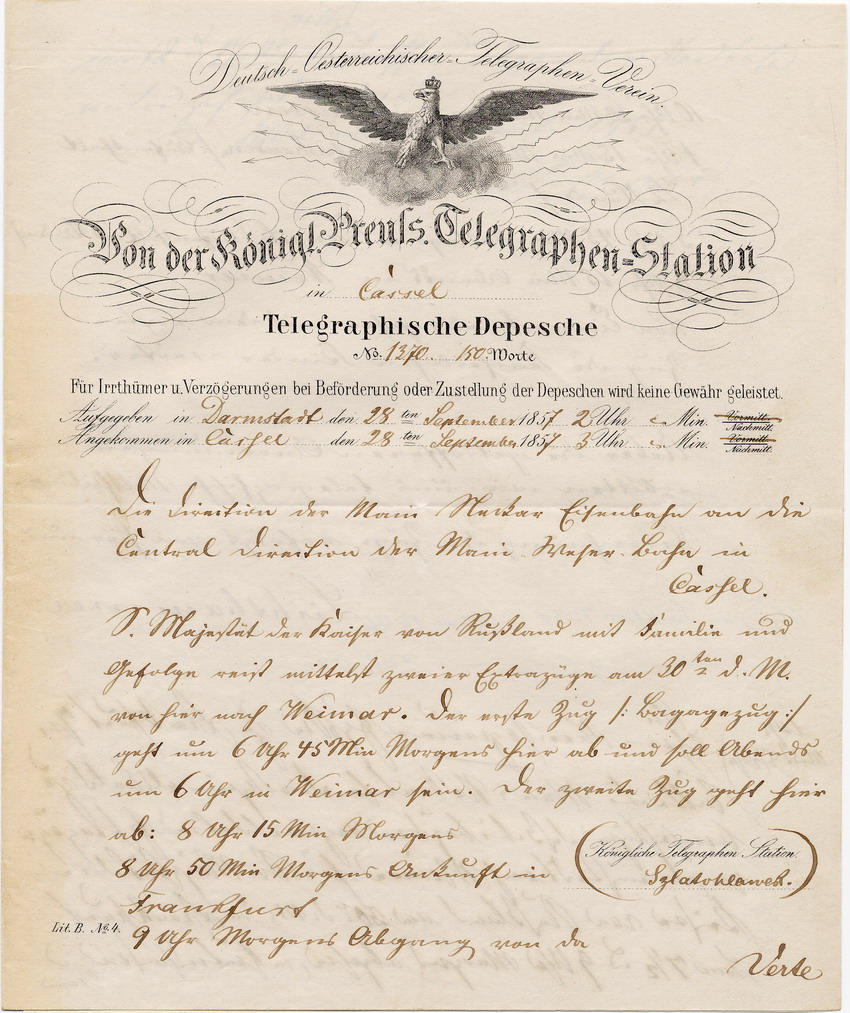 Deutsch-Oesterreichischer-Telegraphen-Verein.
Von der Königl. Preuſs. Telegraphen-Station
in Cassel
Telegraphische Depesche
No. 1370. 150 Worte
Für Irrthümer u. Verzögerungen bei Beförderung oder Zustellung der Depeschen wird keine Gewähr geleistet.
Aufgegeben in Darmstadt den 28 ten September 1857 2 Uhr Min. Vormitt. Nachmitt.
Angekommen in Cassel den 28 ten September 1857 3 Uhr Min. Vormitt. Nachmitt.
Die Direction der Main Neckar Eisenbahn an die
Central Direction der Main-Weser-Bahn in
Cassel.
S. Majestät der Kaiser von Rußland mit Familie und
Gefolge reist mittelst zweier Extrazüge am 30 ten d. M.
von hier nach Weimar. Der erste Zug /: Bagagezug :/
geht um 6 Uhr 45 Min Morgens hier ab und soll Abends
um 6 Uhr in Weimar sein. Der zweite Zug geht hier
ab: 8 Uhr 15 Min Morgens
8 Uhr 50 Min Morgens Ankunft in
Frankfurt
9 Uhr Morgens Abgang von da
Königliche Telegraphen Station.
Szlatohlawek.
Lit. B. No. 4.
Verte